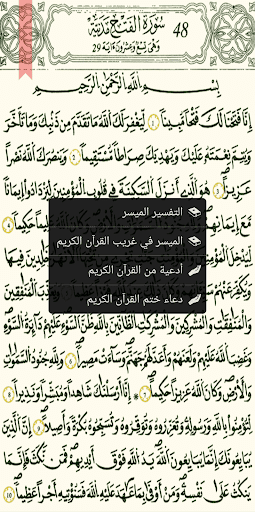 سُورَةُ الْفَتْحِ مَدَنِيَّة 48
وَهْيَ تِسْعٌ وَعِشْرُونَ ءَايَة 29
بِسْمِ اللَّهِ الرَّحْمَٰنِ الرَّحِيمِ
إِنَّا فَتَحْنَا لَكَ فَتْحاً مُّبِيناً ۝1 لِّيَغْفِرَ لَكَ اللَّهُ مَا تَقَدَّمَ مِن ذَنۢبِكَ وَمَا تَأَخَّرَ
وَيُتِمَّ نِعْمَتَهُ عَلَيْكَ وَيَهْدِيَكَ صِرَٰطاً مُّسْتَقِيماً ۝2 وَيَنصُرَكَ اللَّهُ نَصْراً
عَزِيزاً ۝3 هُوَ الَّذِي أَنزَلَ السَّكِينَةَ فِي قُلُوبِ الْمُومِنِينَ لِيَزْدَادُوا إِيمَٰناً
مَّعَ إِيمَٰنِهِمْ حَكِيماً
لِّيُدْخِلَ الْمُومِنِينَ خَٰلِدِينَ فِيهَا
وَيُكَفِّرَ عَنْهُمْ
وَالْمُنَٰفِقَٰتِ وَالْمُشْرِكِينَ وَالْمُشْرِكَٰتِ الظَّآنِّينَ بِاللَّهِ ظَنَّ السَّوْءِ عَلَيْهِمْ دَآئِرَةُ السَّوْءِ
وَغَضِبَ اللَّهُ عَلَيْهِمْ وَلَعَنَهُمْ وَأَعَدَّ لَهُمْ جَهَنَّمَ وَسَآءَتْ مَصِيراً ۝6 وَلِلَّهِ جُنُودُ السَّمَٰوَٰتِ
وَالْأَرْضِ وَكَانَ اللَّهُ عَزِيزاً حَكِيماً ۝7 إِنَّآ أَرْسَلْنَٰكَ شَٰهِداً وَمُبَشِّراً وَنَذِيراً ۝8
لِّتُومِنُوا بِاللَّهِ وَرَسُولِهِ وَتُعَزِّرُوهُ وَتُوَقِّرُوهُ وَتُسَبِّحُوهُ بُكْرَةً وَأَصِيلاً ۝9 إِنَّ الَّذِينَ
يُبَايِعُونَكَ إِنَّمَا يُبَايِعُونَ اللَّهَ يَدُ اللَّهِ فَوْقَ أَيْدِيهِمْ فَمَن نَّكَثَ فَإِنَّمَا
يَنكُثُ عَلَىٰ نَفْسِهِ وَمَنْ أَوْفَىٰ بِمَا عَٰهَدَ عَلَيْهِ اللَّهَ فَسَنُوتِيهِ أَجْراً عَظِيماً ۝10
التفسير الميسر
الميسر في غريب القرآن الكريم
أدعية من القرآن الكريم
دعاء ختم القرآن الكريم